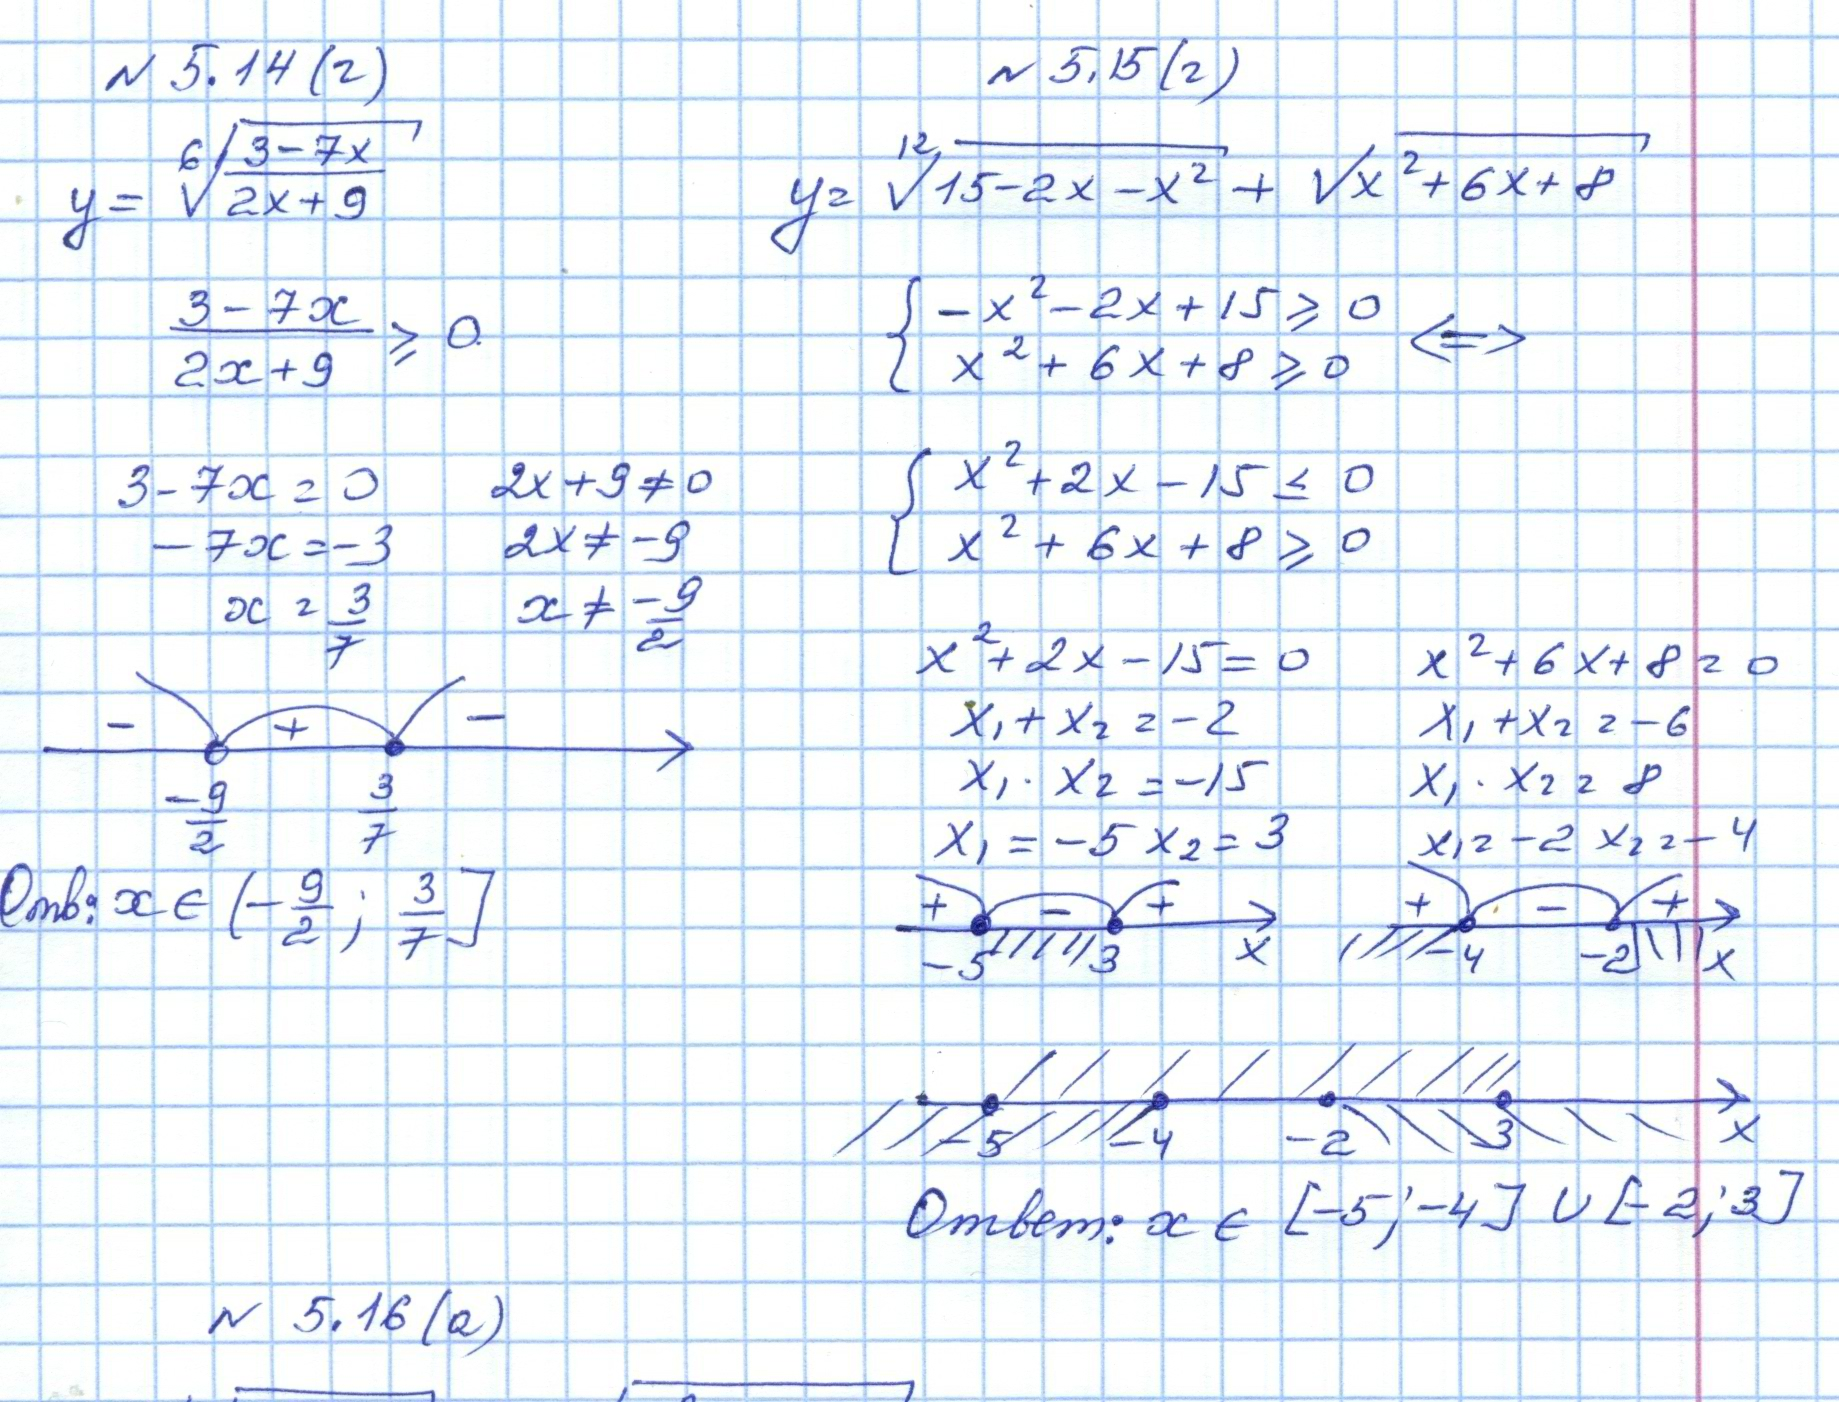 N 5.14 (г)
y = ⁶√((3-7x)/(2x+9))
(3-7x)/(2x+9) ⩾ 0
3-7x = 0
-7x = -3
x = 3/7
2x+9 ≠ 0
2x ≠ -9
x ≠ -9/2
- + -
-9/2 3/7
Отв: x ∈ (-9/2; 3/7]
N 5.15 (г)
y = ¹²√(15-2x-x²) + √(x²+6x+8)
{ -x²-2x+15 ⩾ 0
x²+6x+8 ⩾ 0 <=>
{ x²+2x-15 ≤ 0
x²+6x+8 ⩾ 0
x²+2x-15 = 0
x₁+x₂ = -2
x₁·x₂ = -15
x₁ = -5 x₂ = 3
+ - +
-5 3 x
x²+6x+8 = 0
x₁+x₂ = -6
x₁·x₂ = 8
x₁ = -2 x₂ = -4
+ - +
-4 -2 x
-5 -4 -2 3 x
Ответ: x ∈ [-5; -4] ∪ [-2; 3]
N 5.16 (а)